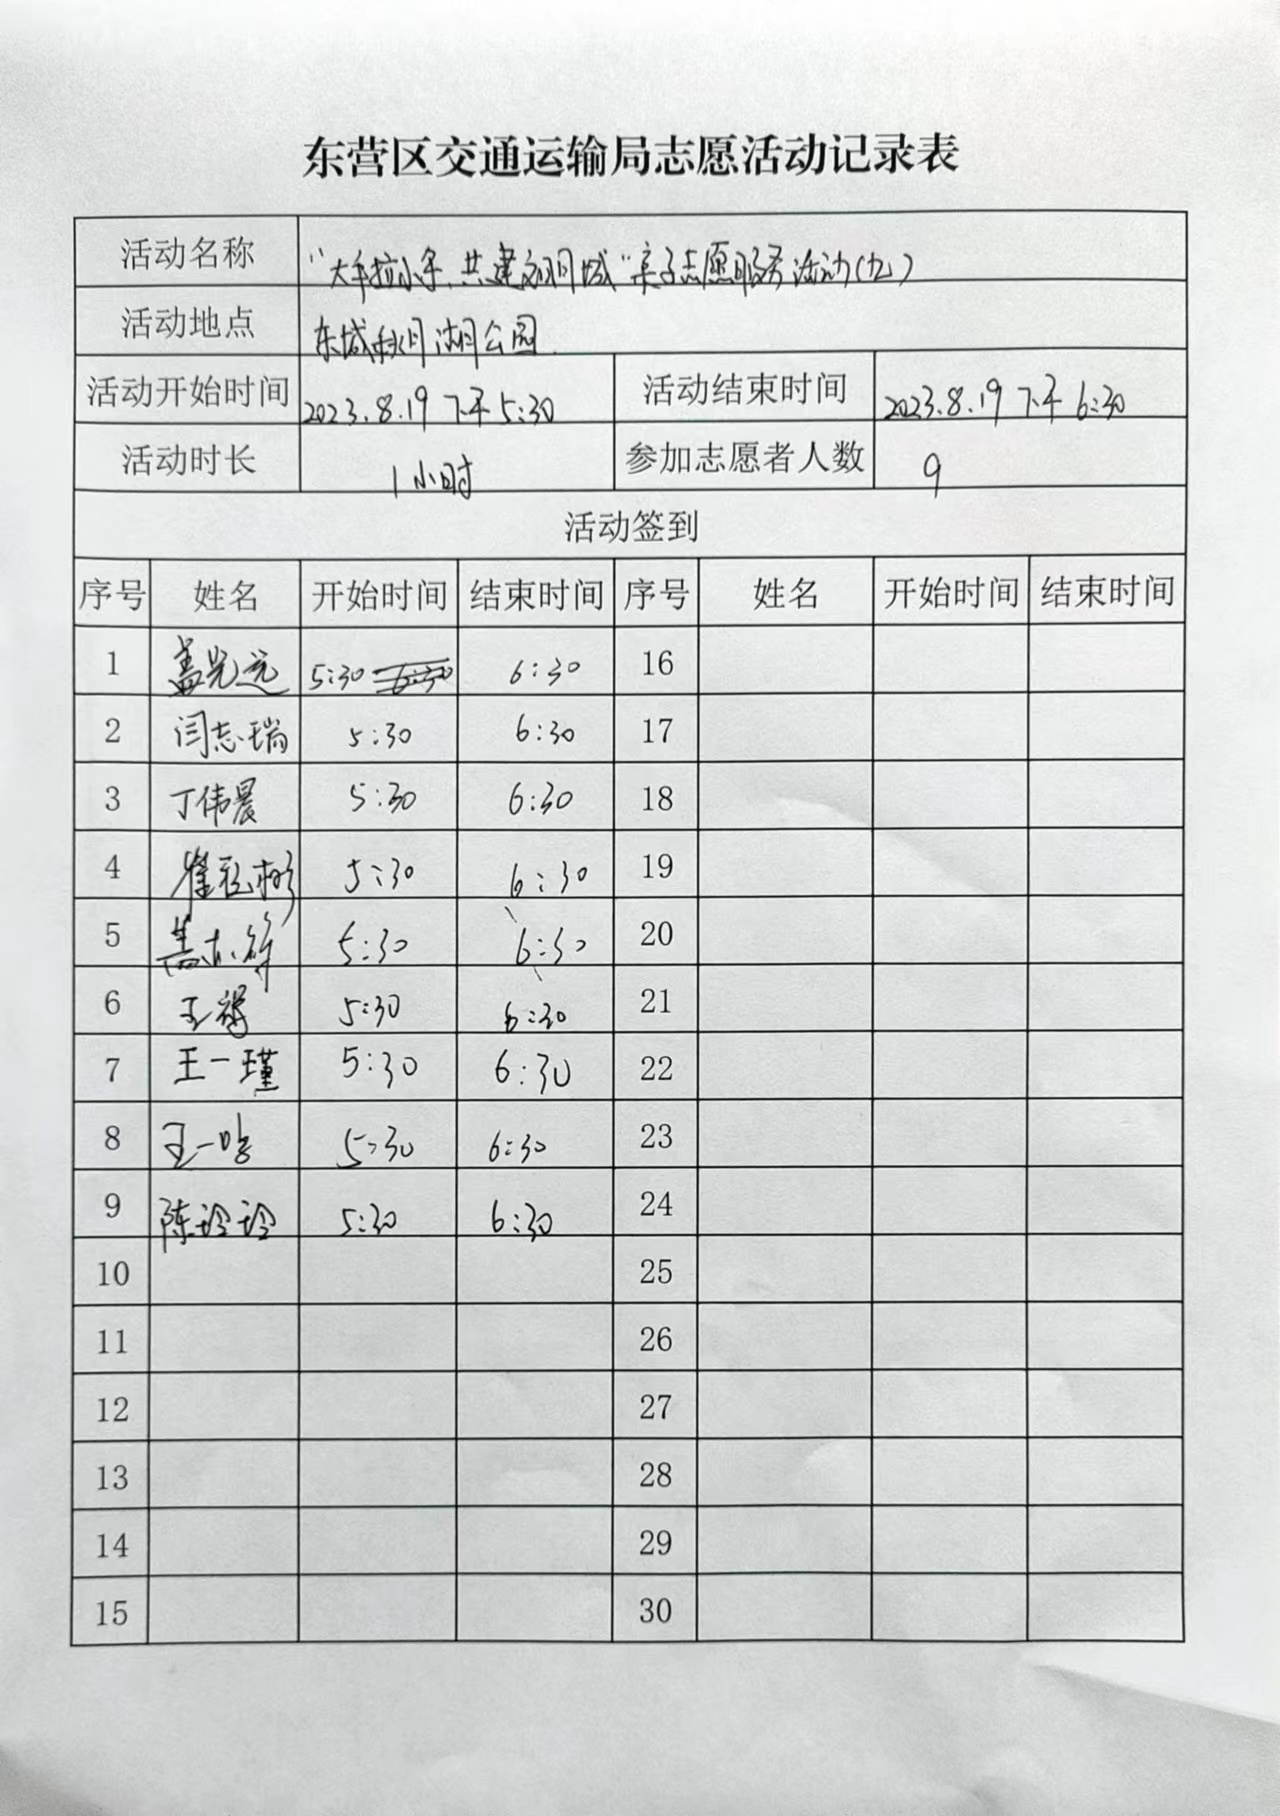 东营区交通运输局志愿活动记录表
活动名称 "大手拉小手,共建文明城"亲子志愿服务活动(九)
活动地点 东城秋月湖公园
活动开始时间 2023.8.19 下午5:30 活动结束时间 2023.8.19 下午6:30
活动时长 1小时 参加志愿者人数 9
活动签到
序号 姓名 开始时间 结束时间 序号 姓名 开始时间 结束时间
1 盖光远 5:30 6:30 16
2 闫志瑞 5:30 6:30 17
3 丁伟晨 5:30 6:30 18
4 5:30 6:30 19
5 5:30 6:30 20
6 5:30 6:30 21
7 王一瑾 5:30 6:30 22
8 王一 5:30 6:30 23
9 陈玲玲 5:30 6:30 24
10 25
11 26
12 27
13 28
14 29
15 30